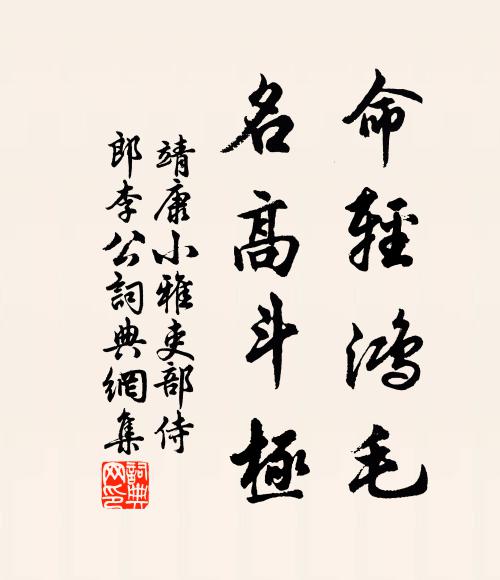 命輕鴻毛
名高斗極
靖康小雅吏部侍
郎李公詞典網集
詞典
网印